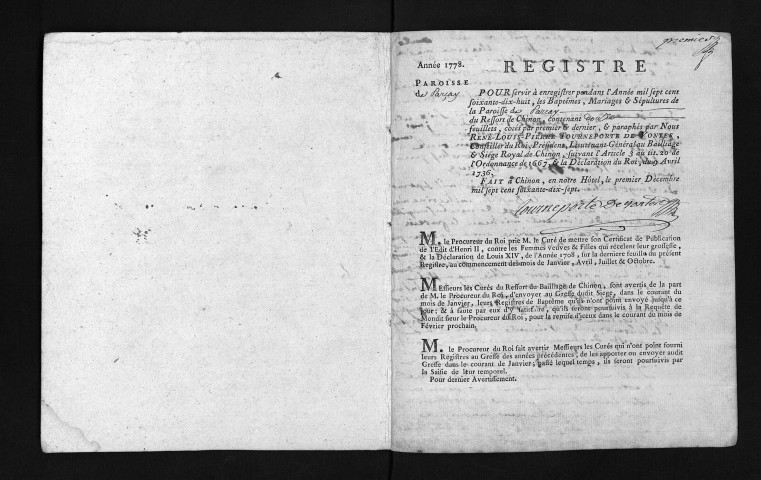 premier
Année 1778.
REGISTRE
PAROISSE
de Parçay
POUR servir à enregistrer pendant l'Année mil sept cent
soixante-dix-huit, les Baptêmes, Mariages & Sépultures de
la Paroisse de Parçay
du Ressort de Chinon, contenant
feuillets, cotés par premier & dernier, & paraphés par Nous
RENÉ-LOUIS-PIERRE TOURNEPORTE DE VONTES,
Conseiller du Roi, Président, Lieutenant-Général au Bailliage
& Siège Royal de Chinon, suivant l'Article 8 au tit. 20 de
l'Ordonnance de 1667, & la Déclaration du Roi, du 9 Avril
1736.
FAIT à Chinon, en notre Hôtel, le premier Décembre
mil sept cent soixante-dix-sept.
Tourneporte De Vontes
M. le Procureur du Roi prie M. le Curé de mettre son Certificat de Publication
de l'Edit d'Henri II, contre les Femmes veuves & Filles qui recelent leur grossesse,
& la Déclaration de Louis XIV, de l'Année 1708, sur la derniere feuille du présent
Registre, au commencement des mois de Janvier, Avril, Juillet & Octobre.
Messieurs les Curés du Ressort du Bailliage de Chinon, sont avertis de la part
de M. le Procureur du Roi, d'envoyer au Greffe dudit Siege, dans le courant du
mois de Janvier, leurs Registres de Baptême qu'ils n'ont point envoyé jusqu'à ce
jour; & à faute par eux d'y satisfaire, qu'ils seront poursuivis à la Requête de
Mondit sieur le Procureur du Roi, pour la remise d'iceux dans le courant de mois de
Février prochain.
M. le Procureur du Roi fait avertir Messieurs les Curés qui n'ont point fourni
leurs Régistres au Greffe des années précédentes, de les apporter ou envoyer audit
Greffe dans le courant de Janvier; passé lequel temps, ils seront poursuivis par
la Saisie de leur temporel.
Pour dernier Avertissement.